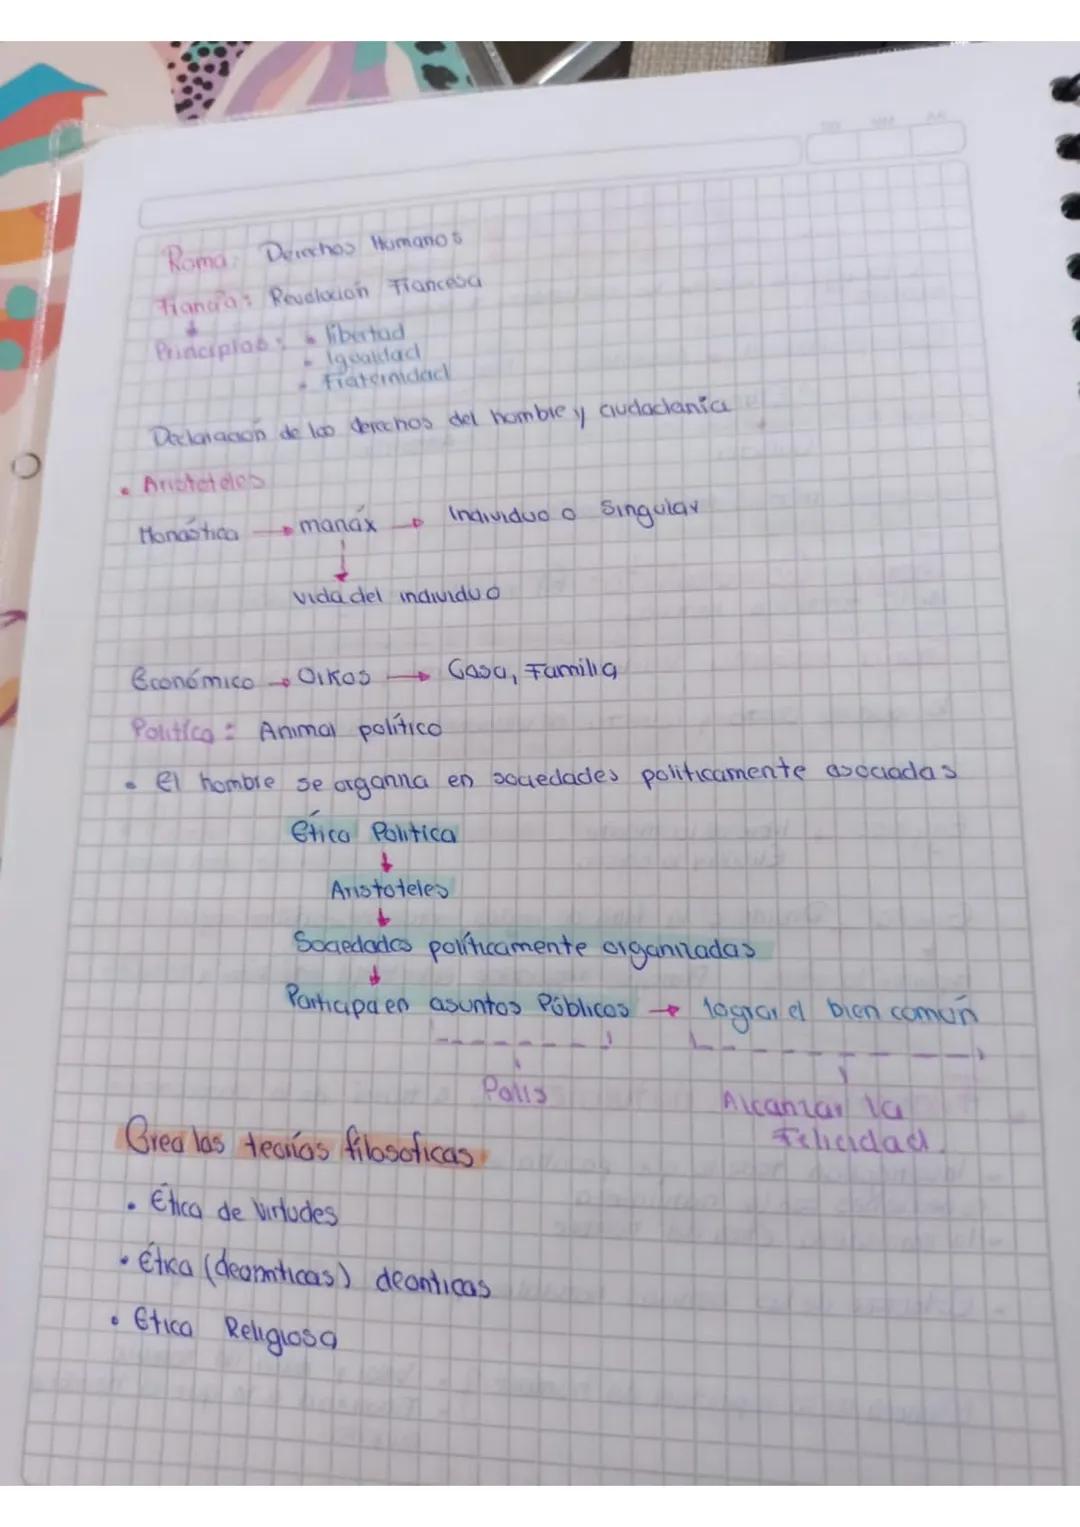 Roma: Derechos Humanos
Francia: Revolución Francesa
Principios: • libertad
• Igualdad
• Fraternidad
Declaración de los derechos del hombre y ciudadanía
• Aristoteles
Monástica → manáx → Individuo o Singular
↓
vida del individuo
Económico → Oikos → Casa, Familia
Política: Animal político
• El hombre se organiza en sociedades politicamente asociadas
Ética Politica
↓
Aristoteles
↓
Sociedades políticamente organizadas
↓
Participa en asuntos Públicos → lograr el bien común
Polis
Alcanzar la
Felicidad.
Crea las teorías filosoficas
• Ética de Virtudes
• Ética (deomnticas) deonticas
• Etica Religiosa